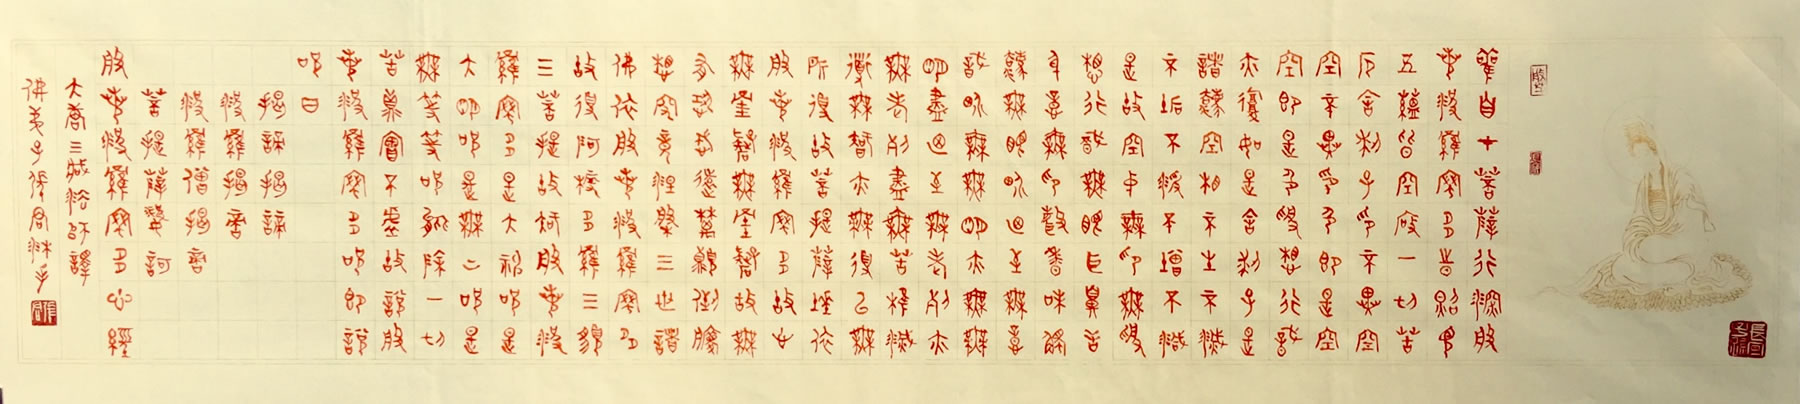 觀自在菩薩行深般
若波羅蜜多時照見
五蘊皆空度一切苦
厄舍利子色不異空
空不異色色即是空
空即是色受想行識
亦復如是舍利子是
諸法空相不生不滅
不垢不淨不增不減
是故空中無色無受
想行識無眼耳鼻舌
身意無色聲香味觸
法無眼界乃至無意
識界無無明亦無無
明盡乃至無老死亦
無老死盡無苦集滅
道無智亦無得以無
所得故菩提薩埵依
般若波羅蜜多故心
無罣礙無罣礙故無
有恐怖遠離顛倒夢
想究竟涅槃三世諸
佛依般若波羅蜜多
故得阿耨多羅三藐
三菩提故知般若波
羅蜜多是大神咒是
大明咒是無上咒是
無等等咒能除一切
苦真實不虛故說般
若波羅蜜多咒即說
咒曰
揭諦揭諦
波羅揭諦
波羅僧揭諦
菩提薩婆訶
般若波羅蜜多心經
大唐三藏法師譯
佛弟子張君